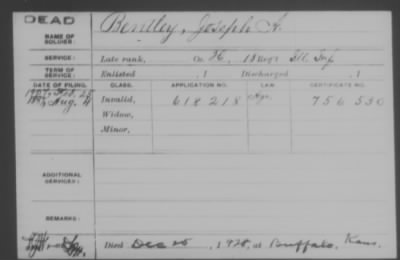 DEAD
NAME OF SOLDIER: Bentley, Joseph A.
SERVICE: Late rank, Co. , 18 Reg't Ill. Inf.
TERM OF SERVICE: Enlisted , 1 Discharged , 1
DATE OF FILING. CLASS. APPLICATION NO. LAW CERTIFICATE NO.
1907 Feb. 25
Aug. 4 Invalid, 618 218 756 530
Widow,
Minor,
ADDITIONAL SERVICES:
REMARKS:
Died Dec 25, 1928, at Buffalo, Kans.